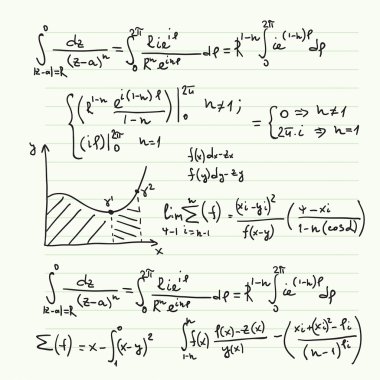 ∫_{|z-a|=R}^{0} dz/(z-a)^n = ∫_0^{2π} Rie^{iφ}/(R^n e^{inφ}) dφ = R^{1-n} ∫_0^{2π} ie^{i(1-n)φ} dφ
{ (R^{1-n} e^{i(1-n)φ}/(1-n)) |_0^{2π} n≠1;
(iφ)|_0^{2π} n=1
= { 0 ⇒ n≠1
2π.i ⇒ n=1
y
f(x)dx-zx
f(y)dy-zy
r¹ r²
x
lim_{4-1} Σ_{i=n-1}^{n} (f) = (xi-yi)²/f(x-y) (4-xi/1-n(cosd))
∫_{|z-a|=R}^{0} dz/(z-a)^n = ∫_0^{2π} Rie^{iφ}/(R^n e^{inφ}) dφ = R^{1-n} ∫_0^{2π} ie^{i(1-n)φ} dφ
Σ(f) = x-∫_1^0 (x-y)²
∫_{1-n}^{n} f(x) f(x)-z(x)/y(x) -(xi+(xi)²-fi/(n-1)^{fi})